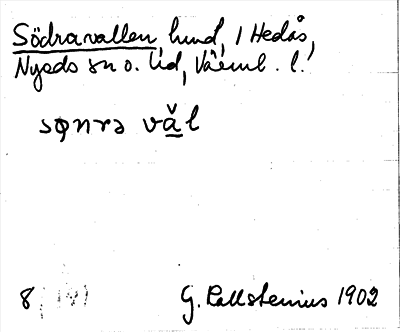 Södravallen, hmd, / Hedås,
Nyeds sn o. hd, Värml. l.
sǫnrə vål
8
G. Kallstenius 1902